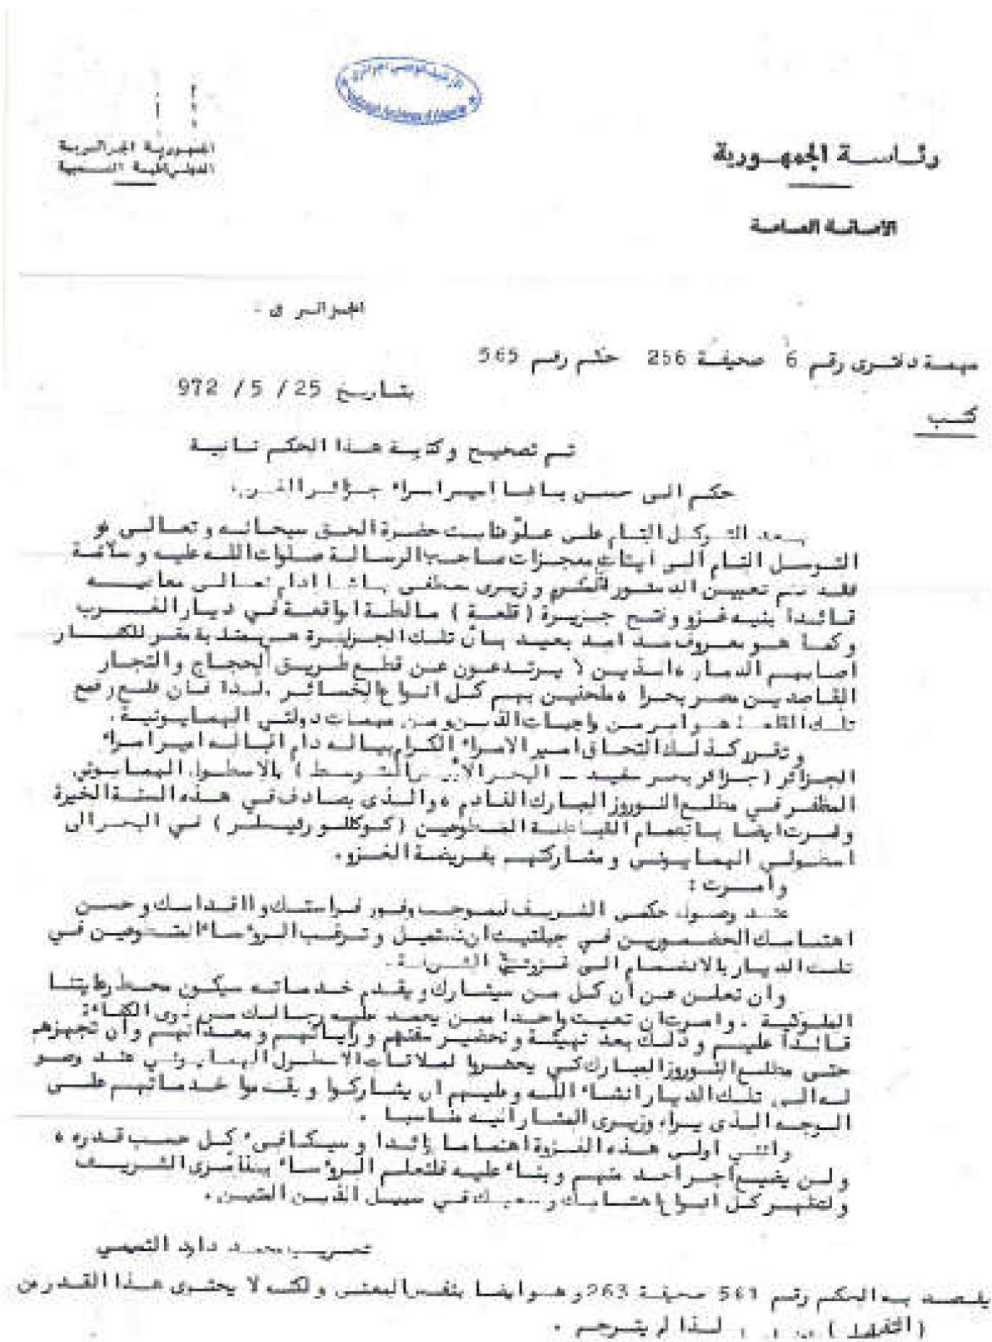 الأرشيف الوطني الجزائري
National Archives of Algeria
الجمهورية الجزائرية
الديمقراطية الشعبية
رئاسة الجمهورية
الأمانة العامة
الجزائر في :
مهمة دفتری رقم 6 صحيفة 256 حكم رقم 565
بتاريخ 25 / 5 / 972
كتب
تم تصحيح وكتابة هذا الحكم ثانية
حكم الى حسن باشا امير امراء جزائر الغرب
بعد التوكل التام على حضرة الحق سبحانه و تعالى و
التوسل التام الى معجزات صاحب الرسالة صلوات الله عليه و سلامه
فلقد تم تعيين الدستور المكرم وزيری مصطفى باشا ادام تعالى معاليه
قائدا بنية غزو وفتح جزيرة ( قلعة ) مالطة الواقعة في ديار الغرب
وكما هو معروف منذ امد بعيد بأن تلك الجزيرة هي مقر للكفار
اصابهم الدمار الذين لا يرتدعون عن قطع طريق الحجاج والتجار
القاصدين مصر بحرا ملحقين بهم كل انواع الخسائر . لذا فان قلع وقمع
تلك القلعة هو امر من واجبات الدين ومن مهمات دولتي الهمايونية .
وتقرر كذلك التحاق امير الامراء الكرام بياله دام اقباله امير امراء
الجزائر ( جزائر بحر سفيد - البحر الأبيض المتوسط ) بالاسطول الهمايوني
المظفر في مطلع النوروز المبارك القادم والذی يصادف في هذه السنة الخيرة
وقررت ايضا بانضمام القباطنة المتطوعين ( كوكللو رئيسلر ) في البحر الى
اسطولي الهمايوني ومشاركتهم بفريضة الغزو .
وأمرت :
عند وصول حكمي الشريف بموجب وفور فراستك و اقدامك و حسن
اهتمامك في جبلتك ان تستميل و ترغب الرؤساء المتطوعين في
تلك الديار بالانضمام الى غزوتي الشريفة .
وأن تعلن عن أن كل من سيشارك ويقدم خدماته سيكون محط رعايتنا
الملوكية . وامرت ان تعين واحدا ممن يعتمد عليه رجالك من ذوی الكفاءة
قائدا عليهم و ذلك بعد تهيئة وتحضير سفنهم و راياتهم و معداتهم وأن تجهزهم
حتى مطلع النوروز المبارك كي يحضروا لملاقات الاسطول الهمايوني عند وصو
له الى تلك الديار انشاء الله وعليهم ان يشاركوا و يقدموا خدماتهم على
الوجه الذی يراه وزيری المشار اليه مناسبا .
وانني اولى هذه الغزوة اهتماما زائدا وسيكافىء كل حسب قدره
ولن يضيع اجر احد منهم و بناء عليه فلتعلم الرؤساء بذا الشريف
ولتظهر كل انواع اهتمامك وسعيك في سبيل الدين المتين .
تعريب محمد داود التميمي
يقصد به الحكم رقم 561 صحيفة 263 وهو ايضا بنفس المعنى ولكنه لا يحتوی هذا القدر من
( التفصيل ) لذا لم يترجم .